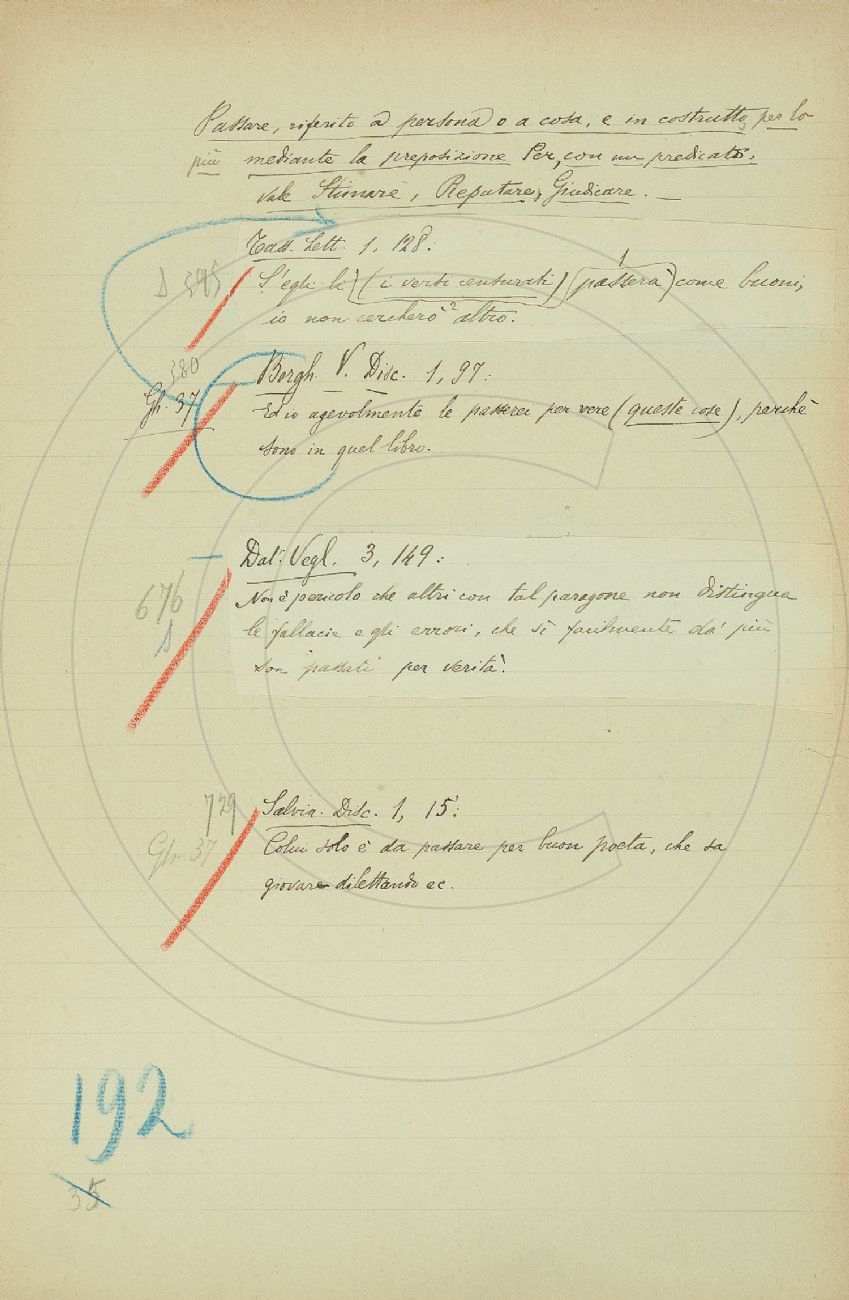 Passare, riferito a persona o a cosa, e in costrutto, per lo
più mediante la preposizione Per, con un predicato,
vale Stimare, Reputare, Giudicare. —
Tass. Lett. 1, 128:
S'egli li (i versi censurati) (passerà) come buoni,
io non cercherò altro.
595
380
Gh. 37
Borgh. V. Disc. 1, 97:
Ed io agevolmente le passerei per vere (queste cose), perchè
sono in quel libro.
Dat. Vegl. 3, 149:
676
Non è pericolo che altri con tal paragone non distingua
le fallacie e gli errori, che sì facilmente da' più
son passati per verità.
729
Gh. 37
Salvin. Disc. 1, 15:
Colui solo è da passare per buon poeta, che sa
giovare dilettando ec.
192
35